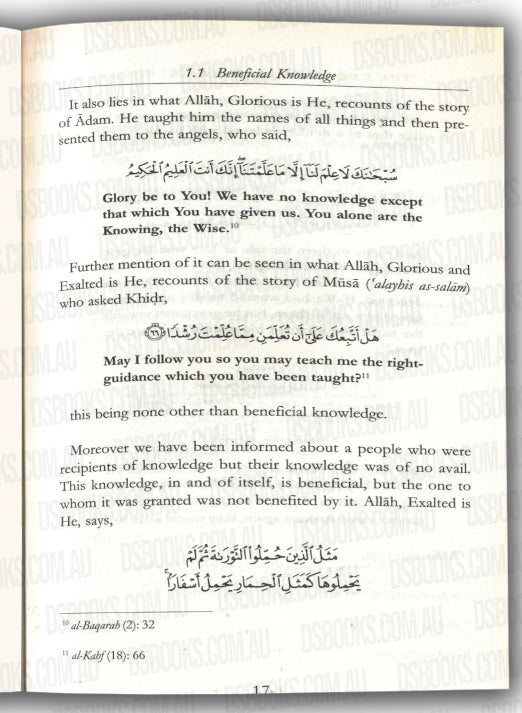 1.1 Beneficial Knowledge
It also lies in what Allāh, Glorious is He, recounts of the story
of Ādam. He taught him the names of all things and then pre-
sented them to the angels, who said,
سُبْحَٰنَكَ لَا عِلْمَ لَنَآ إِلَّا مَا عَلَّمْتَنَآ إِنَّكَ أَنتَ ٱلْعَلِيمُ ٱلْحَكِيمُ
Glory be to You! We have no knowledge except
that which You have given us. You alone are the
Knowing, the Wise.¹⁰
Further mention of it can be seen in what Allāh, Glorious and
Exalted is He, recounts of the story of Mūsā (‘alayhis as-salām)
who asked Khiḍr,
هَلْ أَتَّبِعُكَ عَلَىٰٓ أَن تُعَلِّمَنِ مِمَّا عُلِّمْتَ رُشْدًا ﴿٦٦﴾
May I follow you so you may teach me the right-
guidance which you have been taught?¹¹
this being none other than beneficial knowledge.
Moreover we have been informed about a people who were
recipients of knowledge but their knowledge was of no avail.
This knowledge, in and of itself, is beneficial, but the one to
whom it was granted was not benefited by it. Allāh, Exalted is
He, says,
مَثَلُ ٱلَّذِينَ حُمِّلُوا۟ ٱلتَّوْرَىٰةَ ثُمَّ لَمْ
يَحْمِلُوهَا كَمَثَلِ ٱلْحِمَارِ يَحْمِلُ أَسْفَارًۢا
¹⁰ al-Baqarah (2): 32
¹¹ al-Kahf (18): 66
17
DSBOOKS.COM.AU